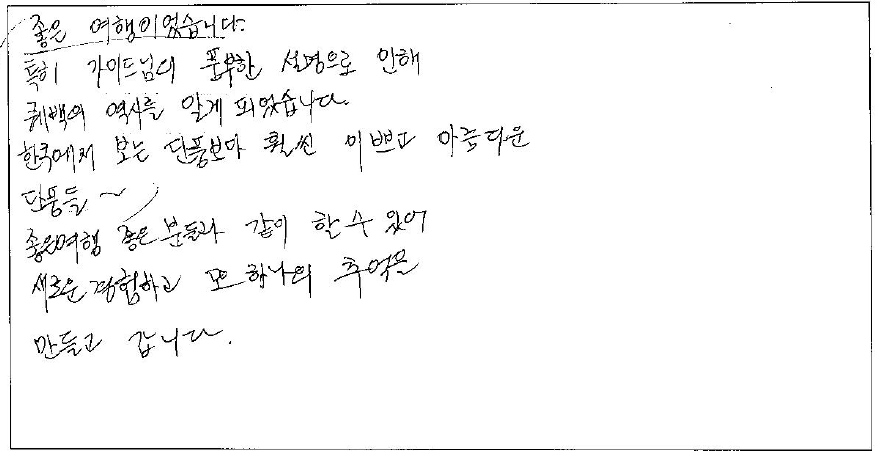 좋은 여행이었습니다.
특히 가이드님의 풍부한 설명으로 인해
퀘백의 역사를 알게 되었습니다.
한국에서 보는 단풍보다 훨씬 이쁘고 아름다운
단풍들~
좋은여행 좋은분들과 같이 할 수 있어
새로운경험하고 또 하나의 추억을
만들고 갑니다.